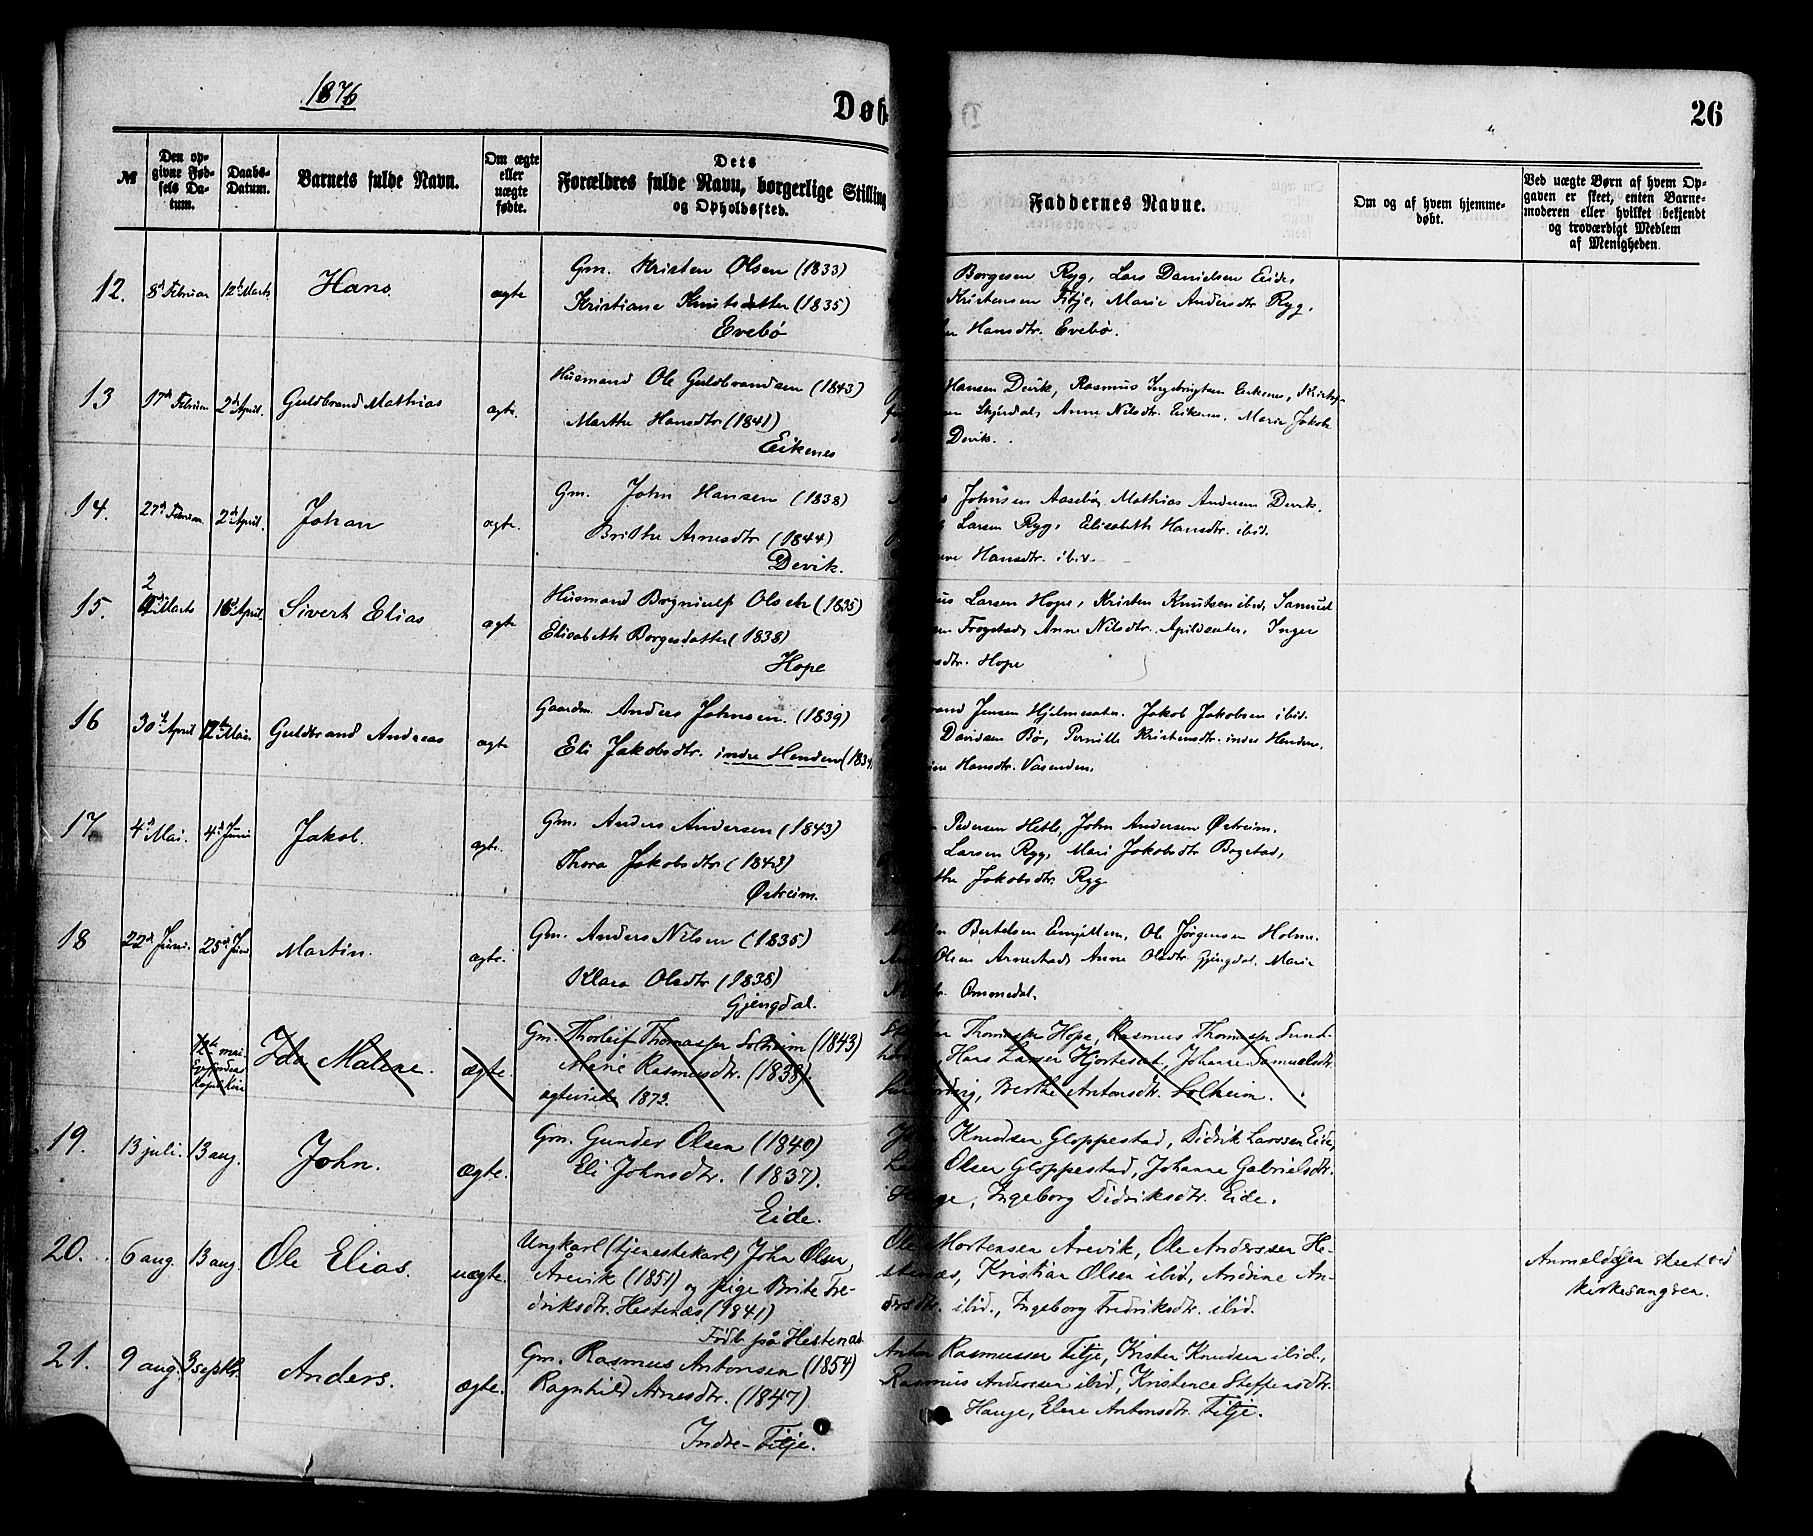 1876
Døb
26
№
Den opgivne Fødsels Datum.
Daabs-Datum.
Barnets fulde Navn.
Om ægte eller uægte fødte.
Dets Forældres fulde Navn, borgerlige Stilling og Opholdssted.
Faddernes Navne.
Om og af hvem hjemmedøbt.
Ved uægte Børn af hvem Opgaven er skeet, enten Barnemoderen eller hvilket bekjendt og troværdigt Medlem af Menigheden.
12. 8d Februar 12te Marts Hans. ægte
Gm. Kristen Olsen (1833)
Kristiane Knutsdatter (1835)
Evebø
Borgesen Ryg, Lars Danielsen Eide,
Kristensen Fitje, Marie Andersdtr Ryg,
Hansdtr. Evebø.
13 17de Februar 2d April. Guldbrand Mathias ægte.
Husmand Ole Guldbrandsen (1843)
Marthe Hansdtr (1841)
Eikenes
Hansen Devik, Rasmus Ingebrigtsen Eikenes,
Skjerdal, Anne Nilsdtr. Eikenes, Marie Jakobs
Devik.
14. 27d Februar 2d April. Johan ægte.
Gm. John Hansen (1838)
Brithe Arnesdtr (1844)
Devik.
Johnsen Aasebø, Mathias Andersen Devik.
Larsen Ryg, Elisabeth Hansdtr. ibid.
Hansdtr. ibid.
15. 2 Marts 16d April. Sivert Elias ægte
Husmand Bogniulf Olsen (1835)
Elisabeth Borgesdatter (1838)
Hope
Larsen Hope, Kristen Knutsen ibid, Samuel
Frogstad, Anne Nilsdtr. Apildsæter. Inger
dtr. Hope
16 30d April 12te Mai. Guldbrand Andreas ægte
Gaardm. Anders Johnsen. (1839)
Eli Jakobsdtr. indre Henden (183
Jensen Hjelmesæter. Jakob Jakobsen ibid.
Davidsen Bø, Pernille Kristensdtr. indre Henden,
Hansdtr. Vasenden.
17 4d Mai. 4d Juni Jakob. ægte.
Gm. Anders Andersen (1843)
Thora Jakobsdtr (1842)
Østreim.
Pedersen Hetle, John Andersen Østreim.
Larsen Ryg, Mari Jakobsdtr Bogstad,
Jakobsdtr. Ryg
18 22d Juni. 25d Juni Martin. ægte.
Gm. Anders Nilsen (1835)
Klara Olsdtr (1838)
Gjengdal.
Bertelsen Emjellem, Ole Jørgensen Holme.
Olsen Arnestad, Anne Olsdtr. Gjengdal. Marie
Ommedal.
12te mai. Ida Malene. ægte.
Gm. Thorleif Thomassen Solheim (1843)
Marie Rasmusdtr. (1838).
ægteviede 1872.
Thomassen Hope, Rasmus Thomassen Sund-
Hans Larsen Hjorteset, Johanne Samuelsdtr.
Berthe Antonsdtr. Solheim.
19. 13 juli. 13 aug. John. ægte.
Gm. Gunder Olsen (1840)
Eli Johnsdtr. (1837).
Eide.
Knudsen Gloppestad, Didrik Larssen Eide,
Olsen Gloppestad, Johanne Gabrielsdtr.
Ingeborg Didriksdtr. Eide.
20. 6 aug. 13 aug. Ole Elias. uægte.
Ungkarl (tjenestekarl) John Olsen
Årevik (1851) og pige Brite Fre-
driksdtr. Hestenæs (1841)
Født på Hestenæs
Ole Mortensen Årevik, Ole Anderssen He-
stenæs, Kristian Olsen ibid, Andrine An-
dersdtr. ibid., Ingeborg Fredriksdtr. ibid.
Anmeldelsen skeet ved
kirkesangeren.
21. 9 aug. 3 septbr. Anders. ægte.
Gm. Rasmus Antonsen (1854)
Ragnhild Arnesdtr. (1847)
Indre-Fitje.
Anton Rasmussen Fitje, Kristen Knudsen ibid.,
Rasmus Anderssen ibid, Kristence Steffensdtr.
Hauge, Elene Antonsdtr. Fitje.